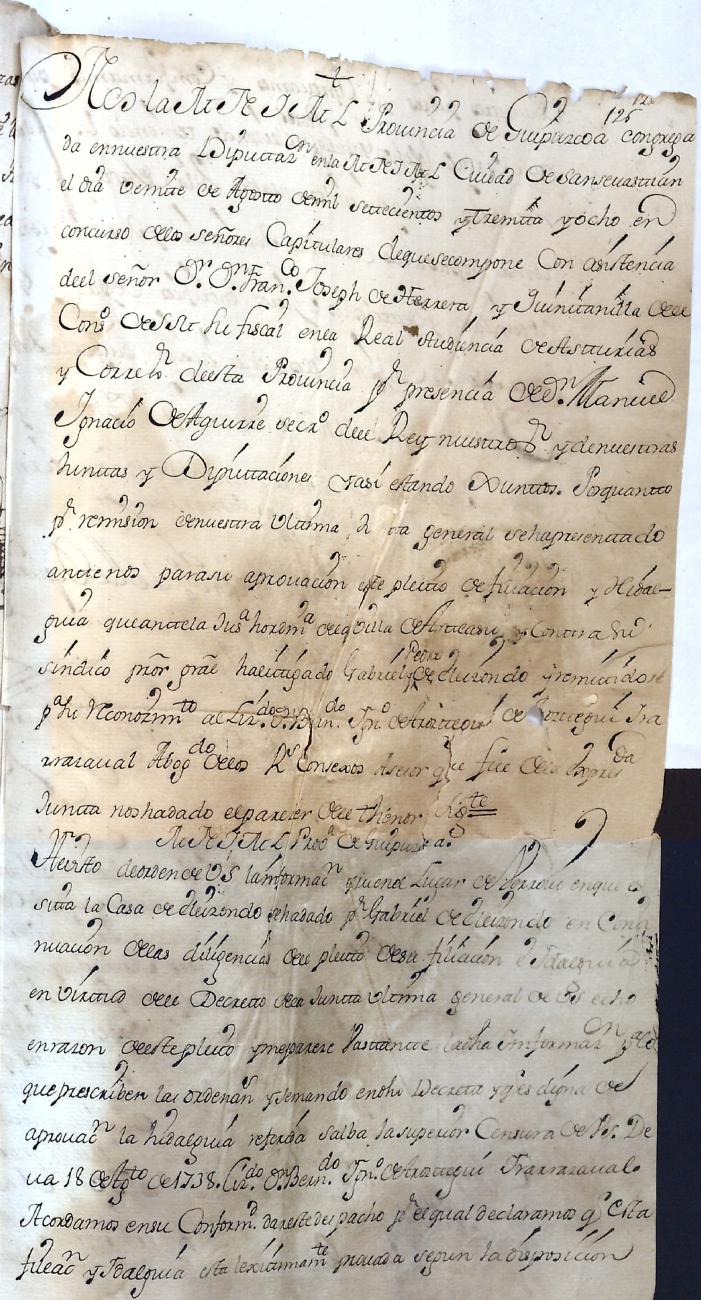 +
126
125
Nos la M. N. I. M. L. Provincia de Guipuzcoa congrega
da en nuestra Diputtazon en la M. N. I. M. L. Ciudad de Sansevastian
el dia veintte de Agosto de mil settecientos y treintta y ocho en
concurso de los señores Capitulares de que se compone Con asistencia
de el señor Dn. Dn. Franco. Joseph de Herrera y Quinttanilla de el
Conso. de S. M. su fiscal en la Real Audiencia de Astturias
y Correor. de esta Provincia pr. presencia de Dn. Manuel
Ignacio de Aguirre secro. de el Rey nuestro Sr. y de nuestras
Junttas y Diputtaciones y asi estando Xunttos. Por quantto
pr. remision de nuestra Ulttima Junta general se ha presenttado
antte nos para su aprovacion este pleitto de filiacion y Hidal-
guia que antte la Jusa. hordina. de la villa de Artteasu y Contra su
sindico pror. gral ha litigado Gabriel Pedro de Elizondo y remitido se
pa. su reconozimto. al Lizdo. Dn. Berndo. Igno. de Aroztegui Ira
rrazaval Abogdo. de los Rs. Consexos Asesor que fue de la expresda.
Juntta nos ha dado el parezer de el thenor sigte.
M. N. I. M. L. Prova. de Guipuzca.
He visto de orden de VS la informacn. que en el Lugar de en que
sitta la Casa de Elizondo se ha dado pr. Gabriel de Elizondo en Conti
nuacion de las diligencias de el pleito de su filiacion e Idalguia
en virttud de el Decretto de la Juntta Ulttima general de VS echo
en razon de este pleito y me pareze vasttantte la dha Informazon. y lo
que prescriben las ordenans. y se mando en dho Decreto y qe. es digna de
aprovacn. la hidalguia referida salba la superior Censura de VS. De
va 18 de Agto. de 1738. Lizdo. Dn. Berndo. Igno. de Aroztegui Irarrazaval.
Acordamos en su Conformd. dar este despacho pr. el qual declaramos qe. esta
filiacn. y Idalguia esta lexitimamte. provada segun la disposicion